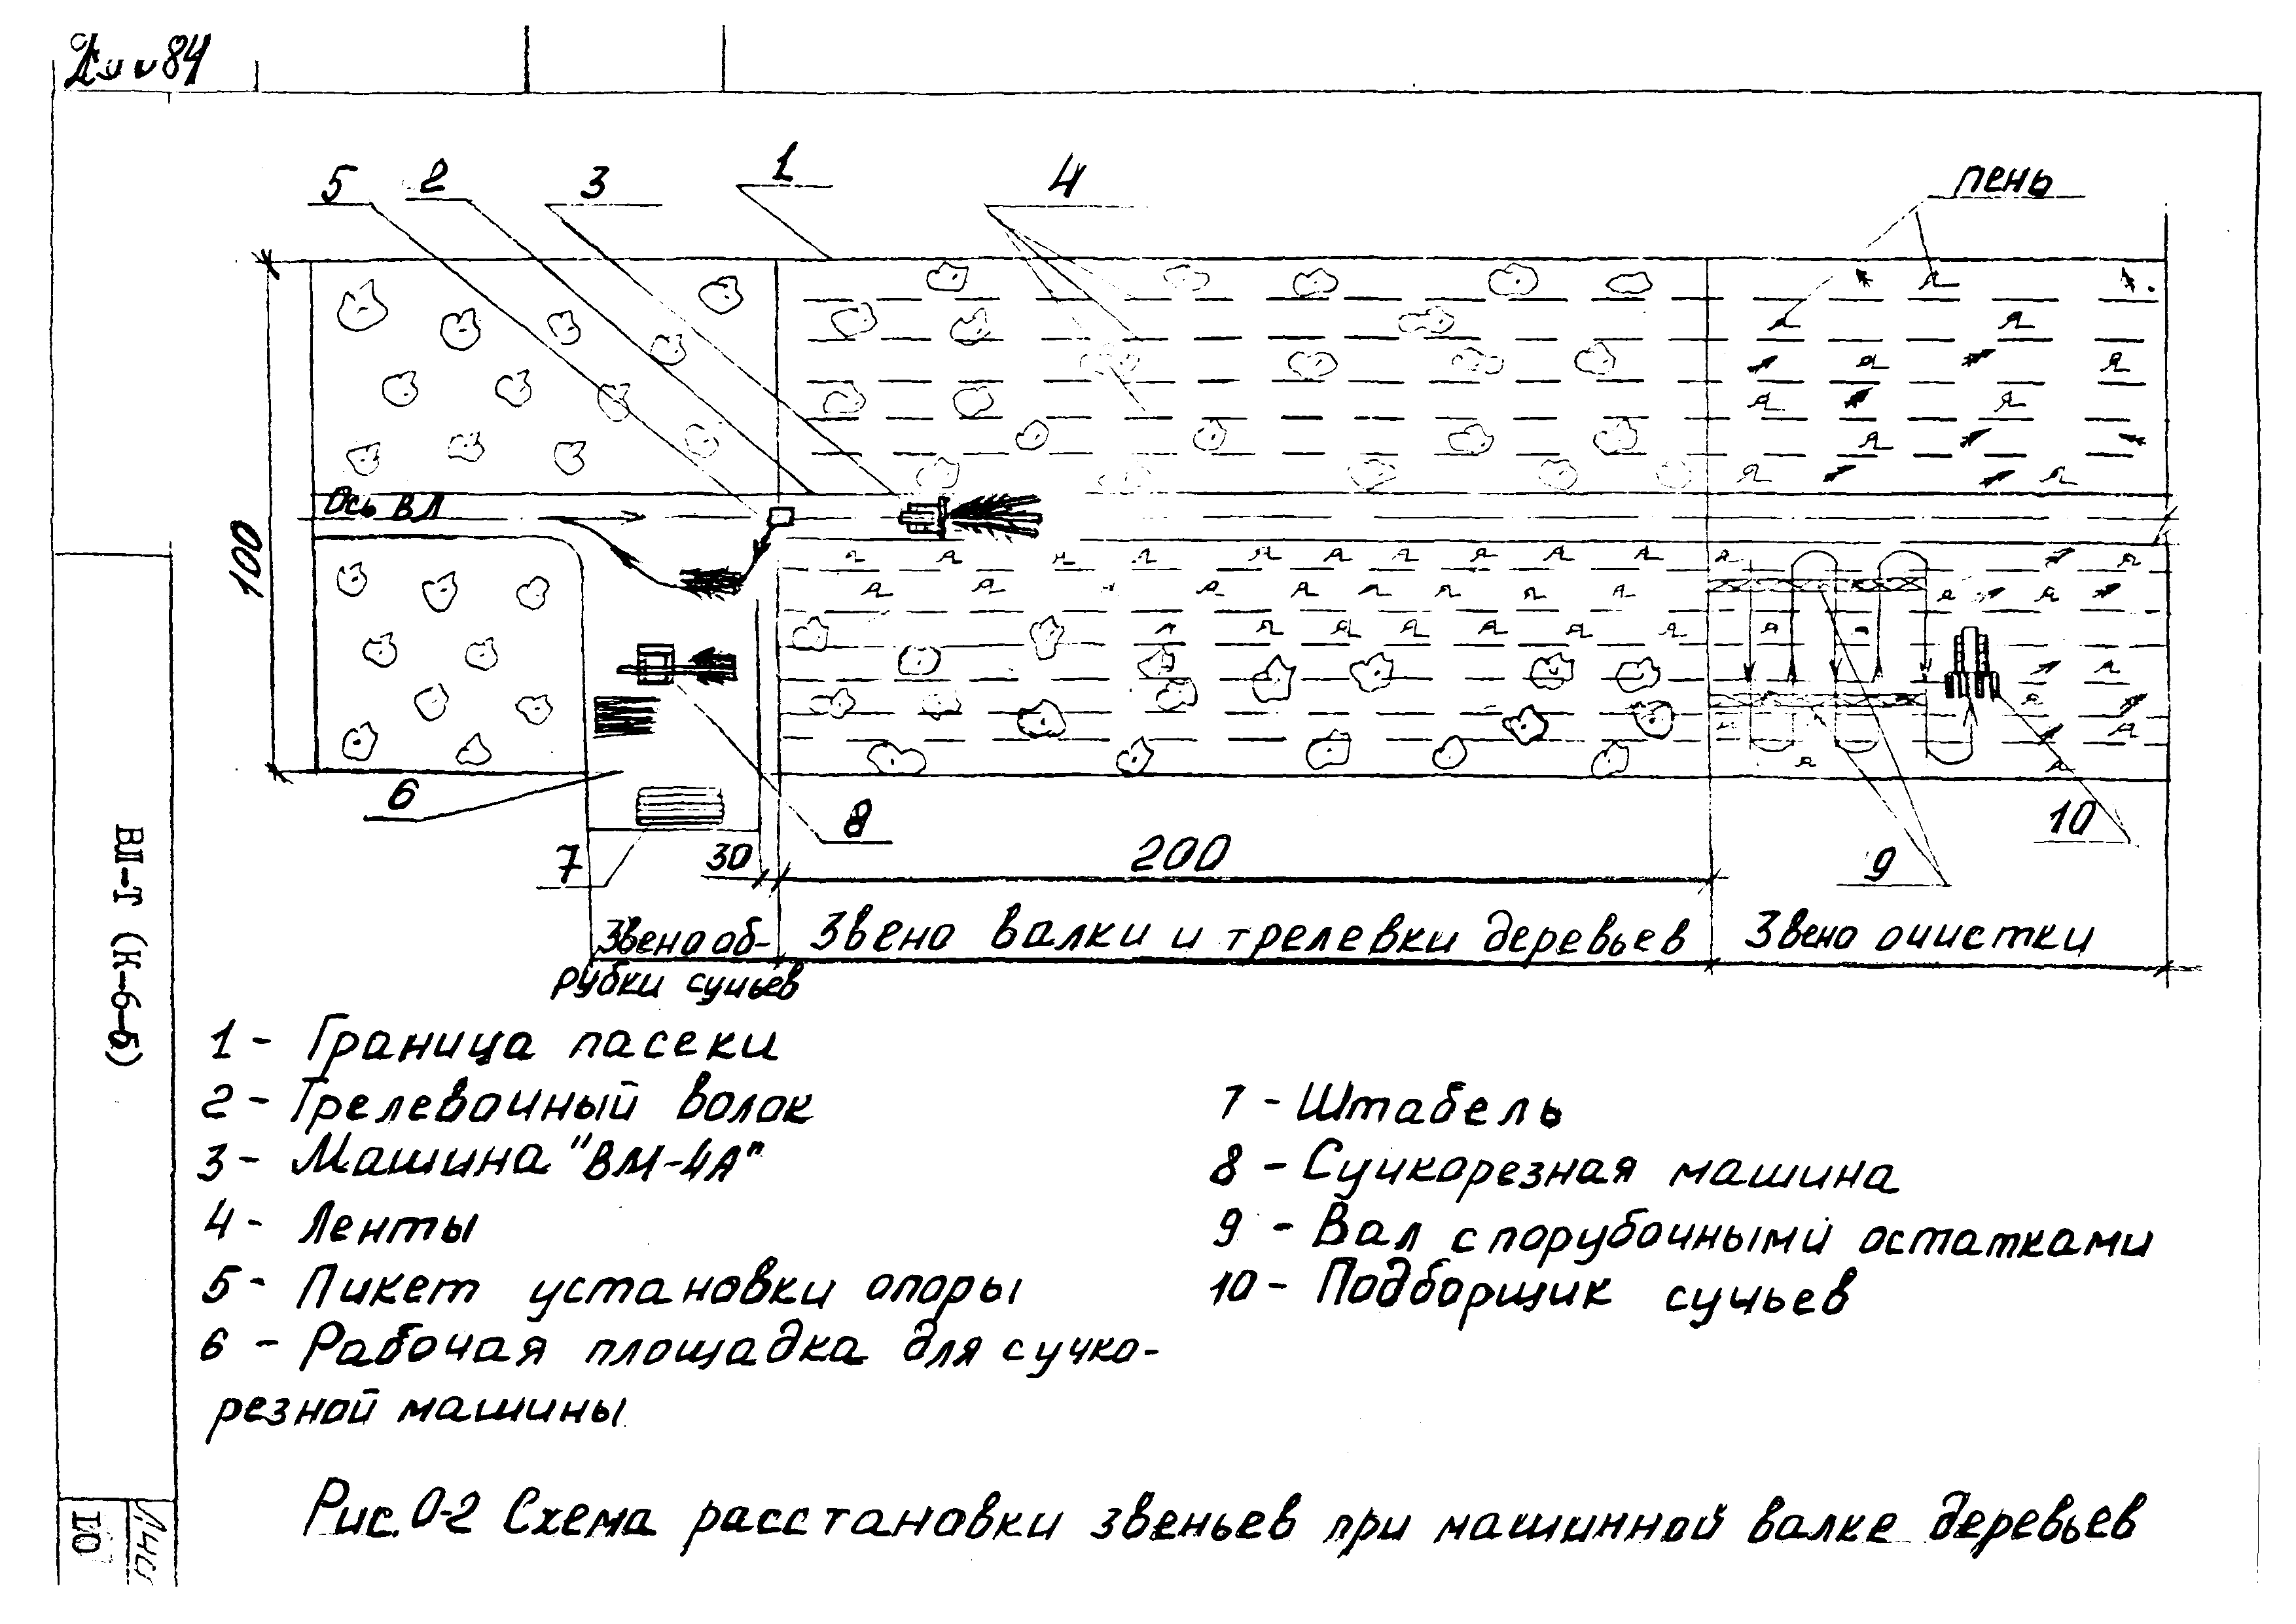 84
5 2 3 1 4 пень
Ось ВЛ
100
6
7
30
8
200
9
10
Звено об-
рубки сучьев
Звено валки и трелевки деревьев
Звено очистки
1 - Граница пасеки
2 - Трелевочный волок
3 - Машина "ВМ-4А"
4 - Ленты
5 - Пикет установки опоры
6 - Рабочая площадка для сучко-
резной машины
7 - Штабель
8 - Сучкорезная машина
9 - Вал с порубочными остатками
10 - Подборщик сучьев
Рис. 0-2 Схема расстановки звеньев при машинной валке деревьев
ВЛ-Т (К-6-5)
Лист
10